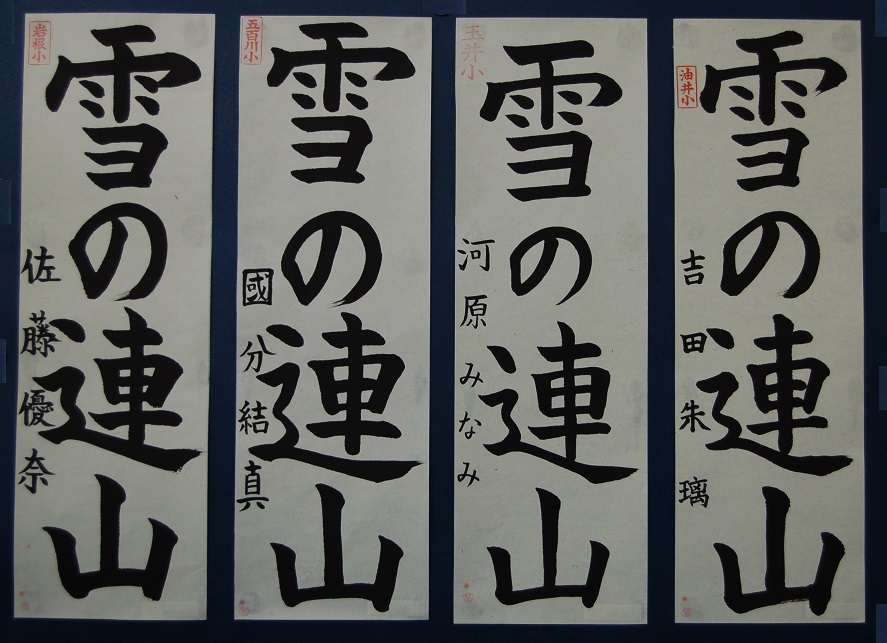 油井小
雪の連山
吉田朱璃
玉井小
雪の連山
河原みなみ
五百川小
雪の連山
國分結真
岩根小
雪の連山
佐藤優奈